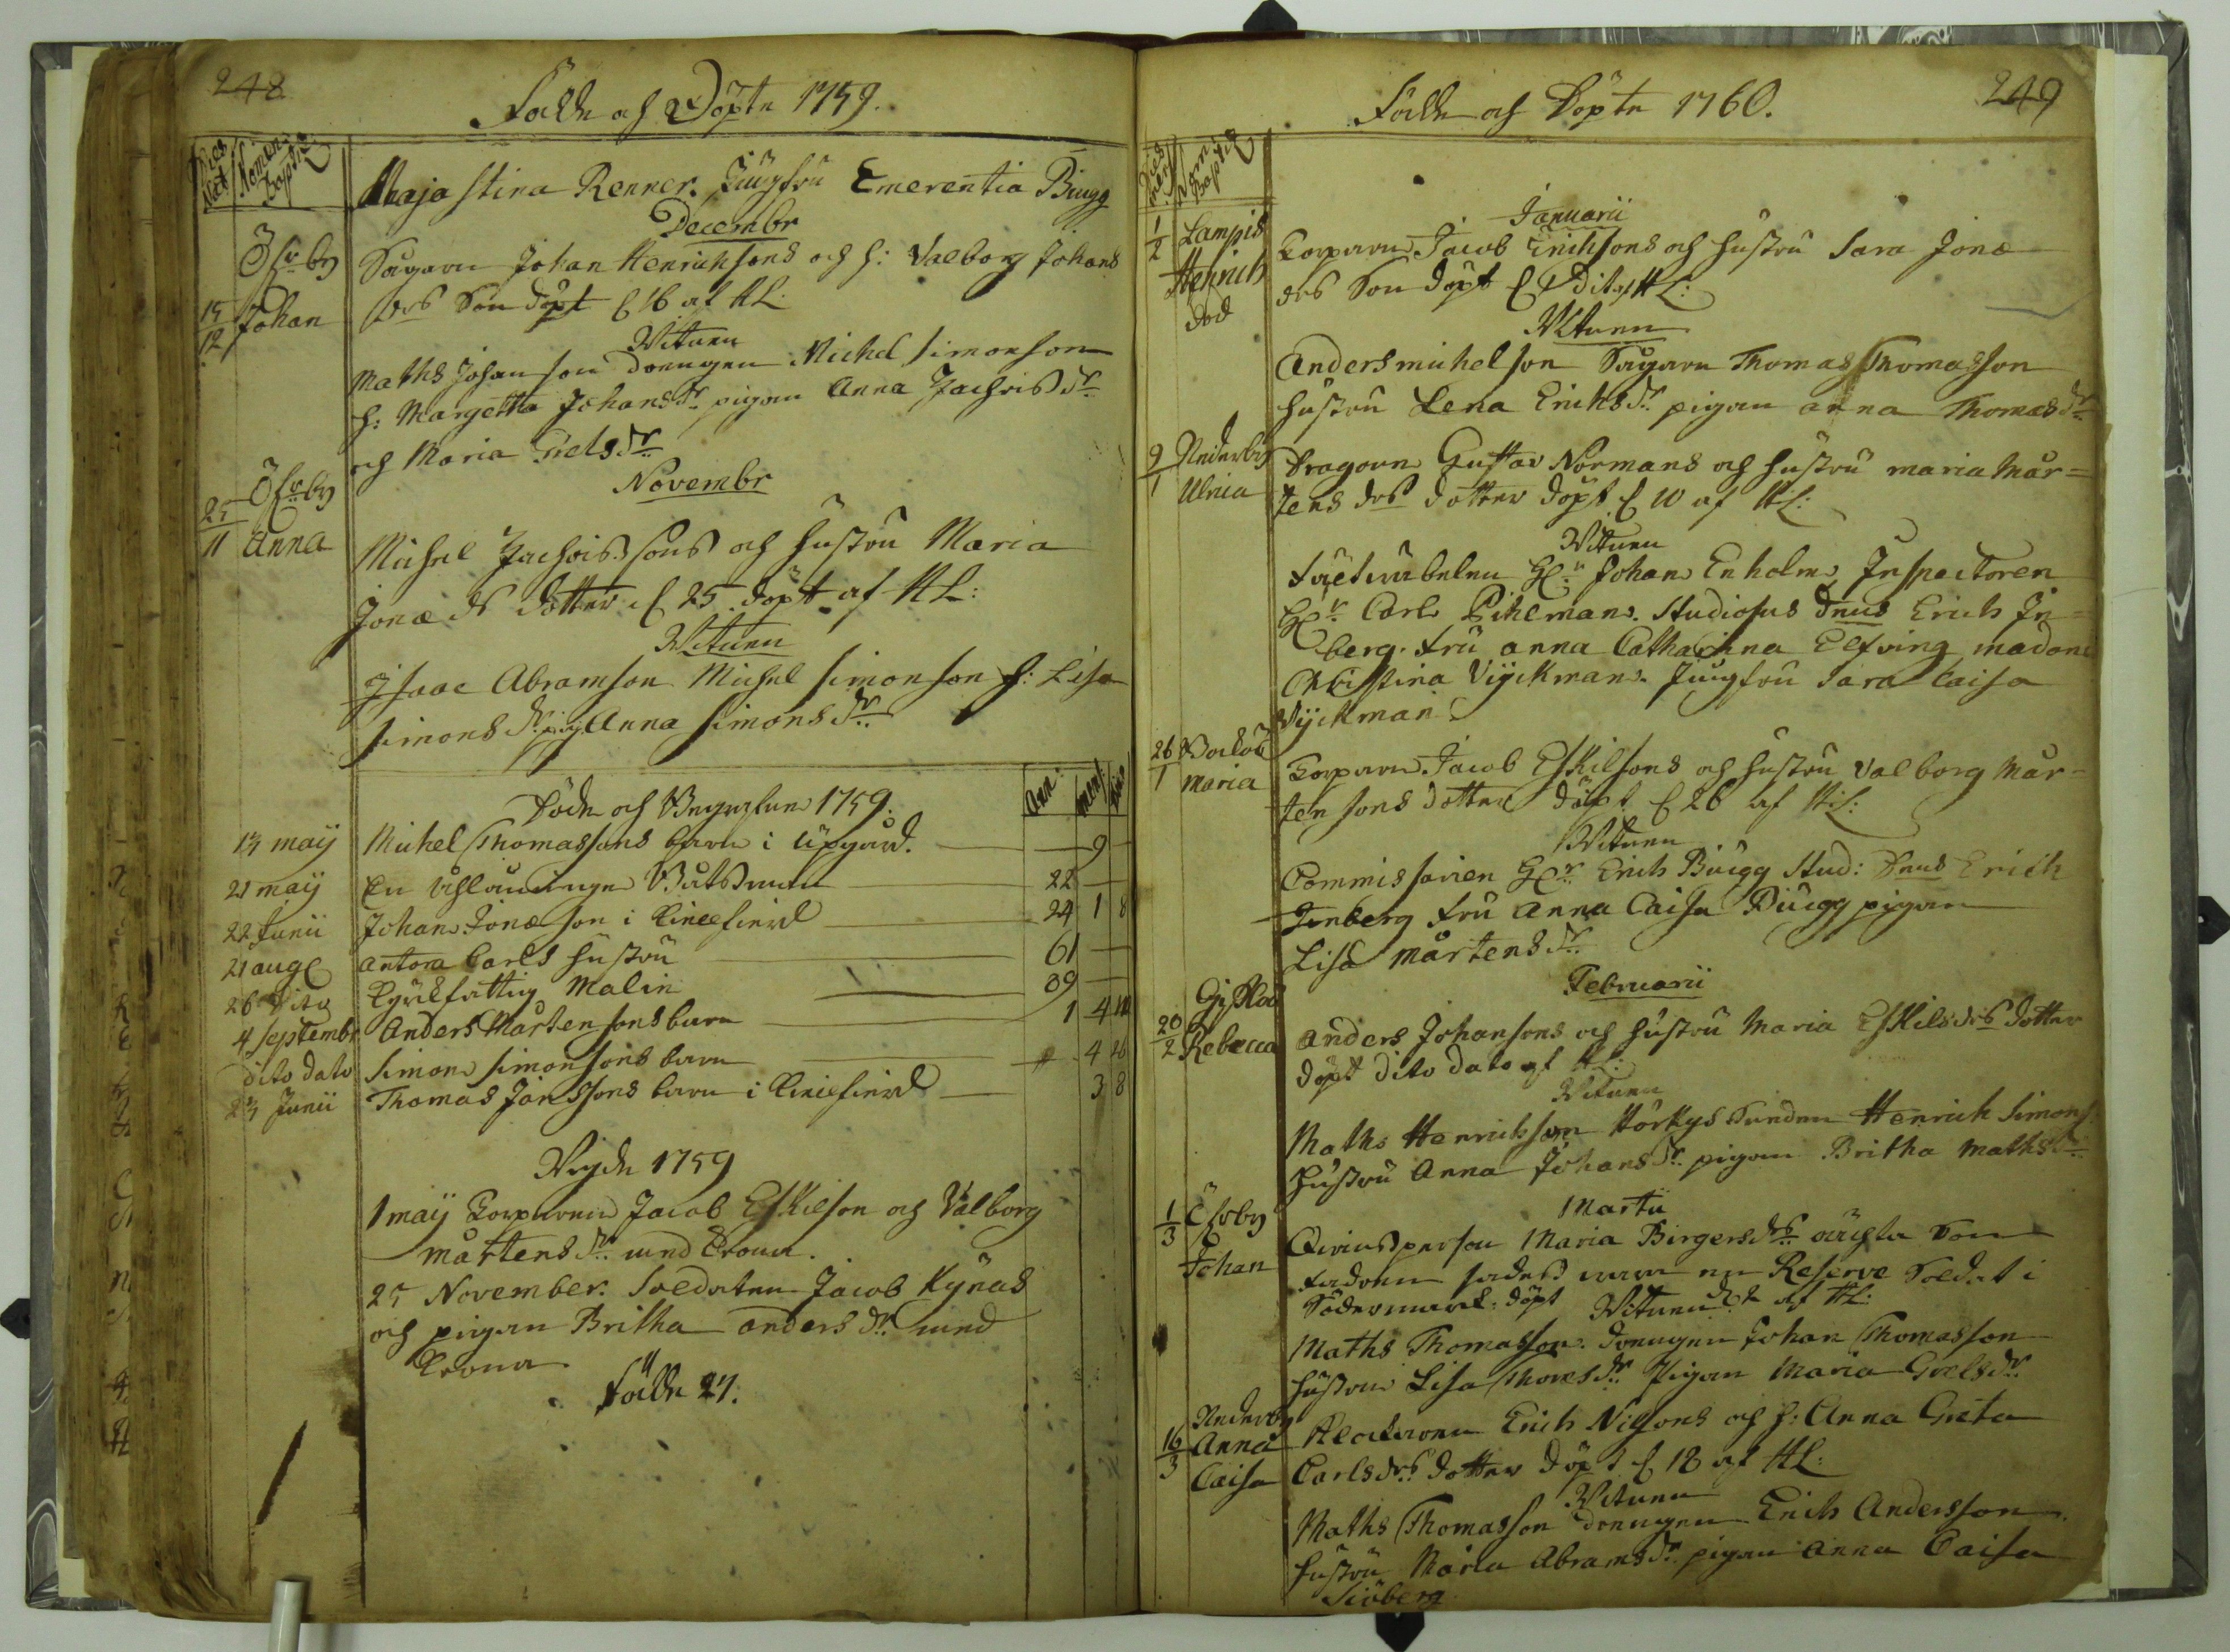 248
Födde och Döpte 1759.
Dies Nat Nomen Baptiz
Maja Stina Renner. Jungfru Emerentia Biugg
Decembr
Öfverby Torparen Johan Henrichsons och h: Valborg Johans
15/12 Johan drs Son döpt d 16 af HL:
Vittnen
Maths Johanson Drengen Michel Simonson
h: Margetta Johansdr pigan Anna Zachrisdr
och Maria Grelsdr
Novembr
25/11 Öfverby Anna
Michel Zachrissons och hustru Maria
Jonæ dr dotter d 25 döpt af HL:
Vittnen
Isaac Abramson Michel Simonson h: Lisa
Simonsdr pig. Anna Simonsdr
Döde och Begrafune 1759. Ann: mens: dies
13 maij Michel Thomassons barn i Upgård. 9
21 maij En Uhlänninge Båtsman 22
22 Junii Johan Jonæson i 24 1 8
21 aug Antora Carls hustru 61
26 dito Malin 39
4 septembr Anders Mårtensons barn 1 4
dito dato Simon Simonsons barn 4
23 Junii Thomas Jonssons barn i 3 8
Vigde 1759
1 maij Torparen Jacob Eskilson och Valborg
Mårtensdr med Crona.
25 November. Soldaten Jacob Kynäs
och pigan Britha Andersdr med
Crona
Födde 27.
249
Födde och Döpte 1760.
Dies mens Nom Baptiz
Januarii
1/2 Lampis Torparen Jacob Erichsons och hustru Sara Jonæ
Henrich drs Son döpt d dito af HL:
död
Vittnen
Anders Michelson Torparen Thomas Thomasson
hustru Lena Erichsdr pigan Anna Thomasdr
9/1 Nederby Dragoun Gustav Normans och hustru Maria Mår=
Ulrica tens drs dotter döpt d 10 af HL:
Vittnen
Hr Johan Enholm Inspectoren
Hr Carl Pihlman. Studiosus Dnus Erich In=
berg. Fru Anna Catharina Elfving madam
Christina Vijckman. Jungfru Sara Caisa
Wijckman
26/1 Maria Torparen Jacob Eskilsons och hustru Valborg Mår=
tensons dotter döpt d 26 af HL:
Vittnen
Commissarien Hr Erich Biugg Stud: Dnus Erich
Inberg Fru Anna Caisa Biugg pigan
Lisa Mårtensdr
Februarii
20/2 Rebecca Anders Johansons och hustru Maria Eskilsdrs dotter
döpt dito dato af HL:
Vittnen
Maths Henrichson Henrich Simons
hustru Anna Johansdr pigan Britha Mathsdr
Martii
1/3 Öfverby Qvinsperson Maria Birgersdrs oächta Son
Johan fadren sades vara en Reserve Soldat i
Södermark. döpt af HL:
Vittnen
Maths Thomasson. Drengen Johan Thomasson
hustru Lisa Thomsdr Pigan Maria Grelsdr
16/3 Nederby Anna Klockaren Erich Nilsons och h: Anna Greta
Caisa Carlsdrs dotter döpt d 18 af HL:
Vittnen
Maths Thomasson drengen Erich Andersson.
hustru Maria Abramsdr pigan Anna Caisa
Siöberg